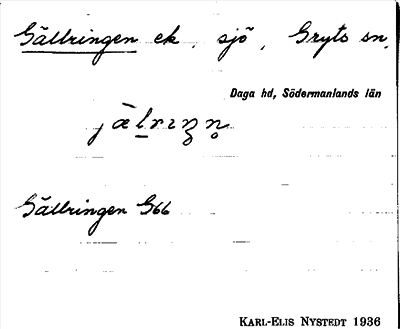 Gällringen ek. sjö, Gryts sn,
Daga hd, Södermanlands län
Gällringen G66
KARL-ELIS NYSTEDT 1936